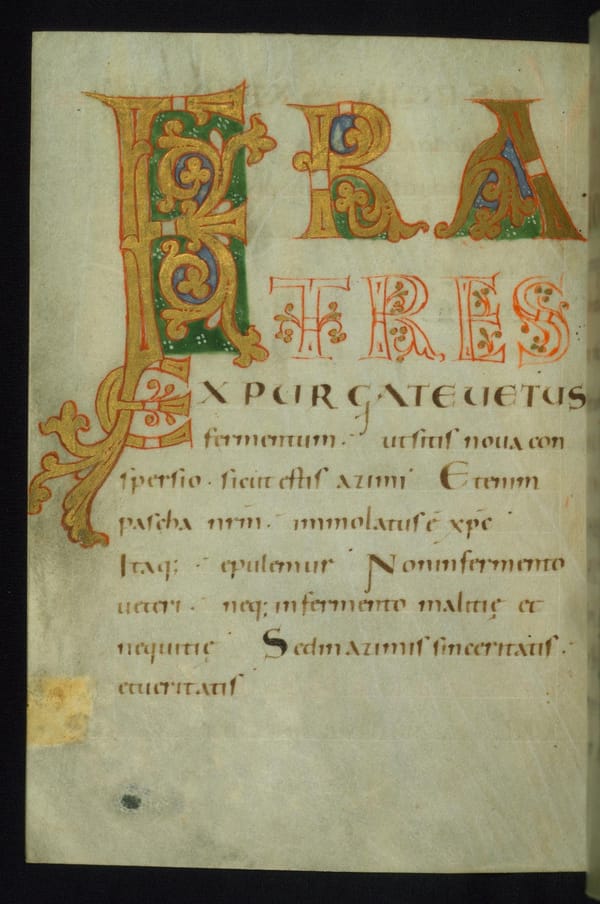 FRA
TRES
EXPURGATE UETUS
fermentum · ut sitis noua con
spersio · sicut estis azimi Etenim
pascha nrm̄ · immolatus ē xp̄c
Itaq; · epulemur Non in fermento
ueteri · neq; in fermento malitię et
nequitię Sed in azimis sinceritatis ·
et ueritatis